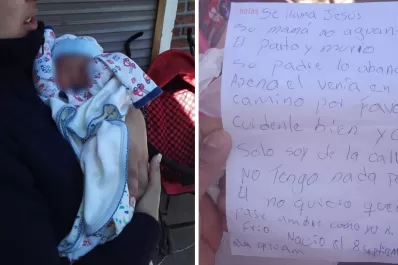 Se llama Jesus
su mama no aguan
el parto y murio
su padre lo aban
Asend el venia en
camino por favo
cuidenle bien yo
solo soy de la call
NO Tengo nada p
el no quiero que
pase ambre como no n
frio Nacio el 8 septie